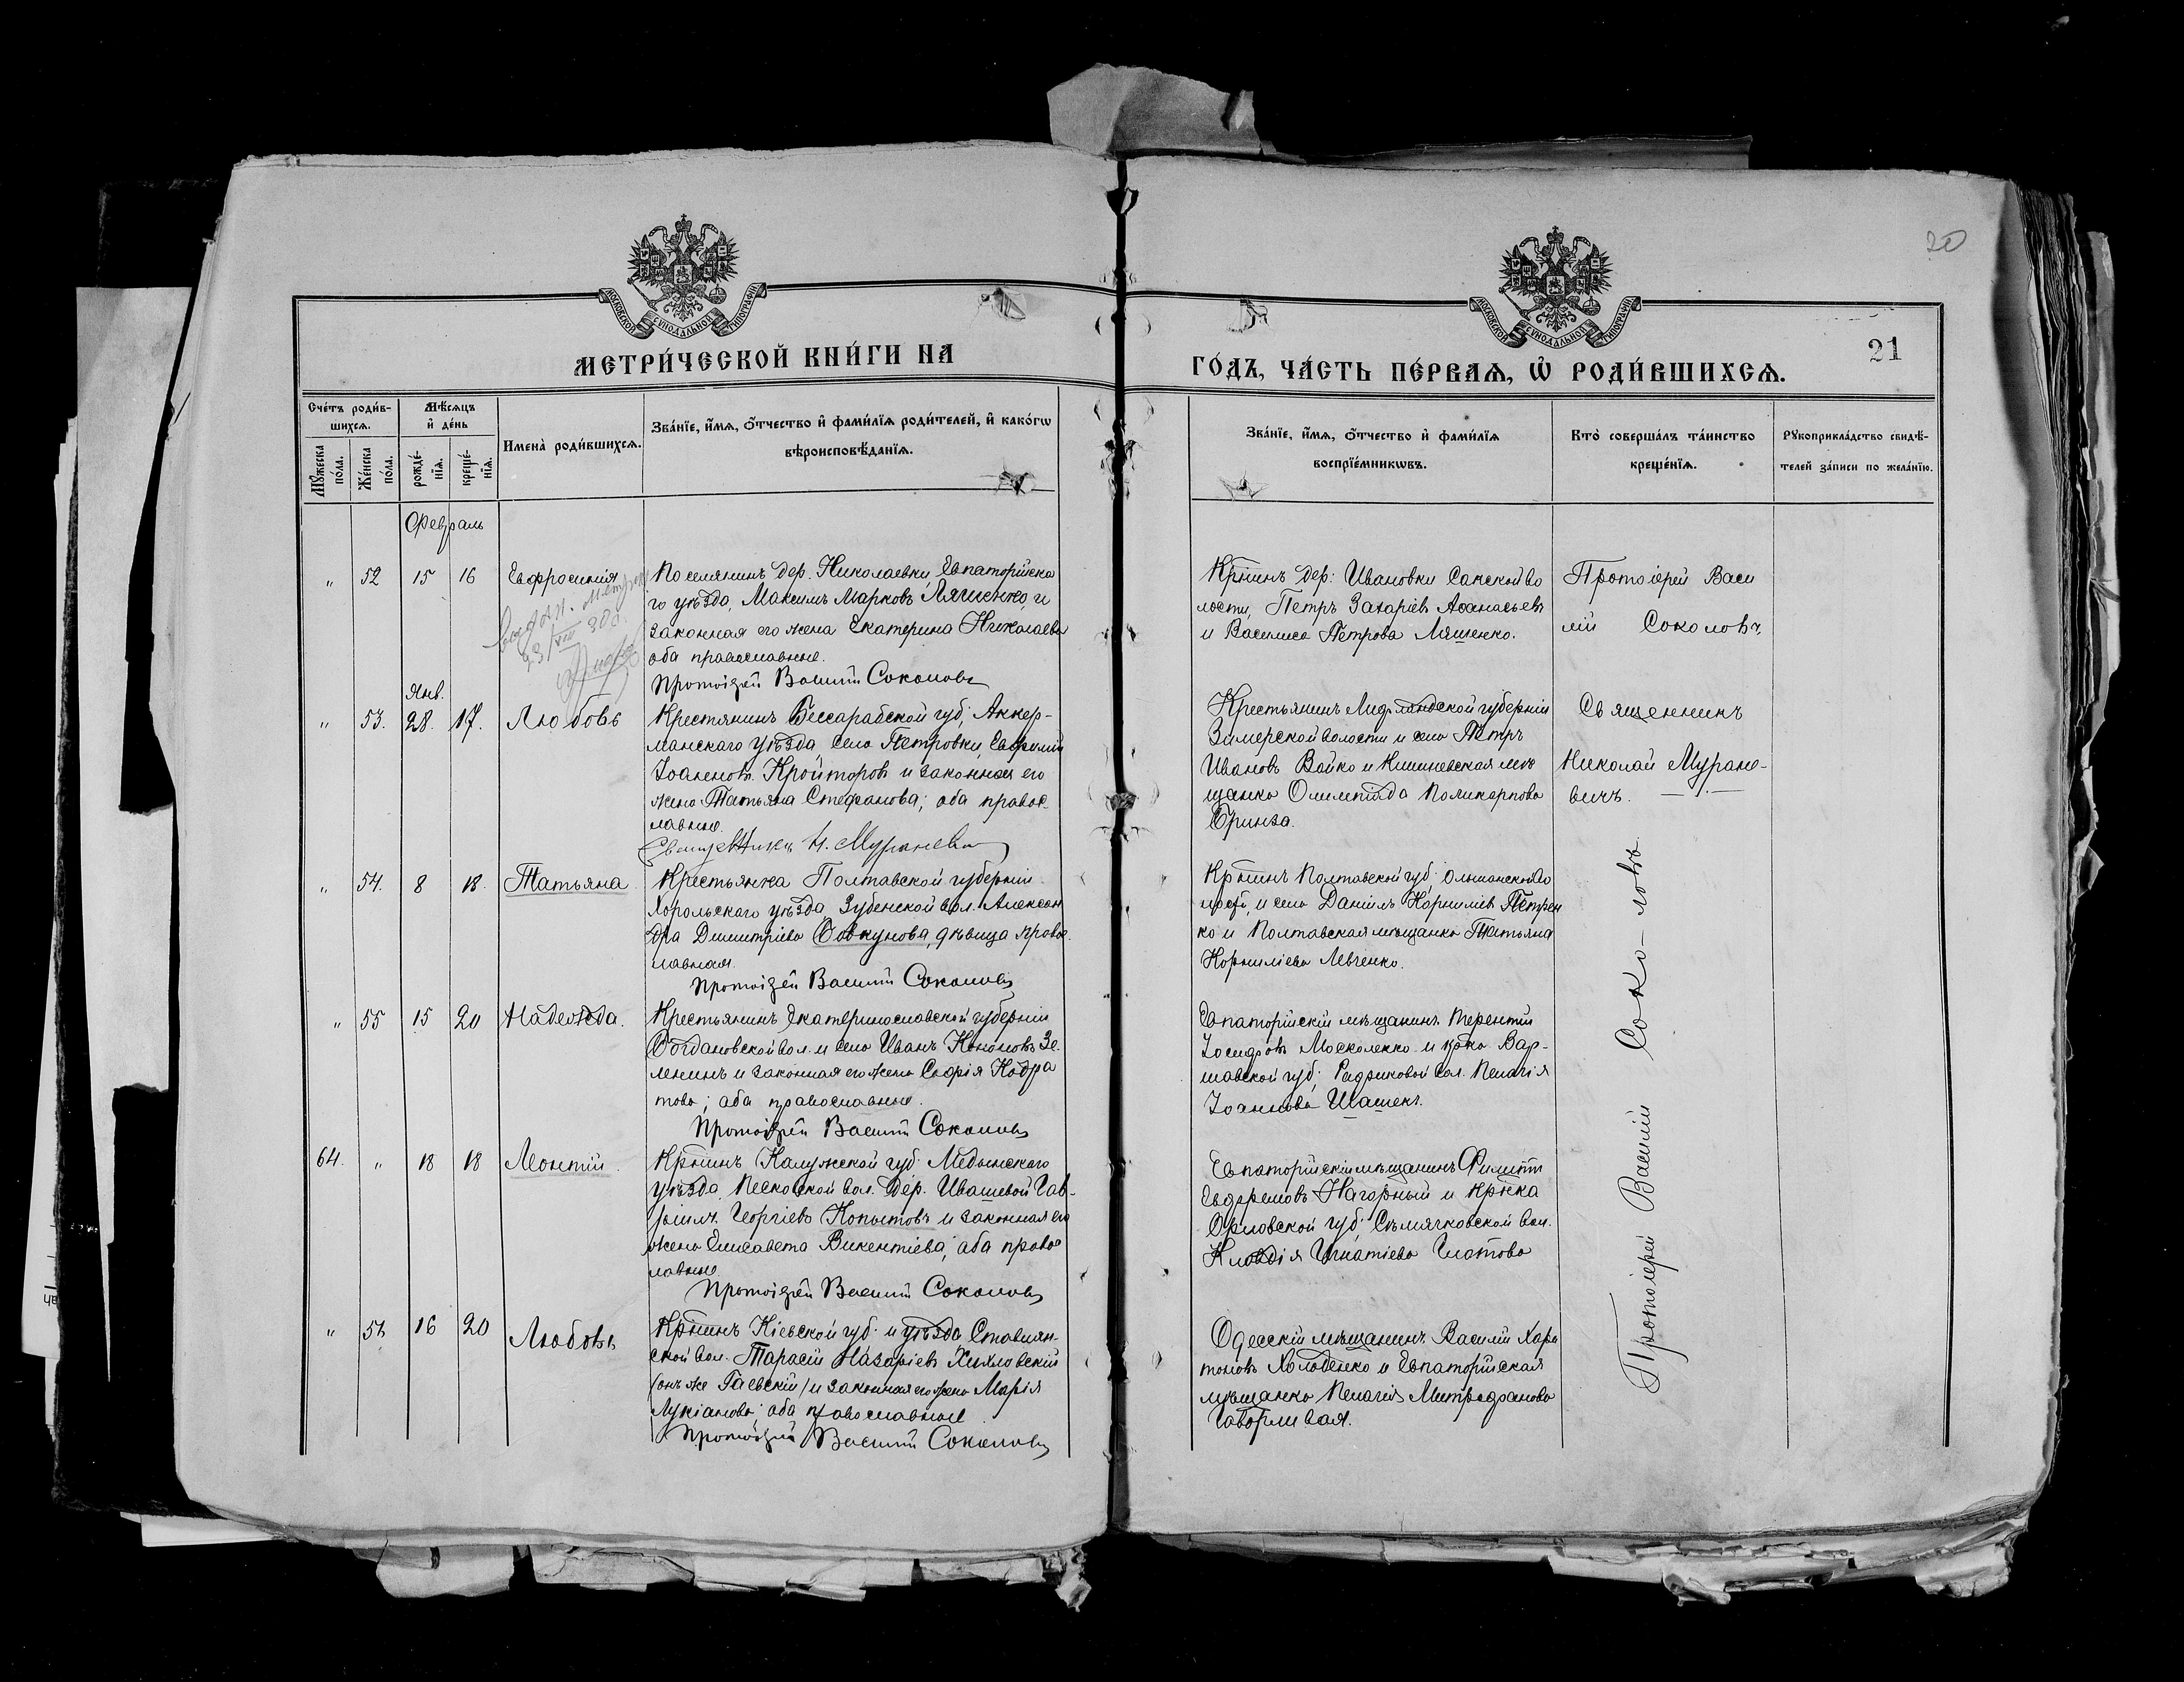 20
МОСКОВСКОЙ СУНОДАЛЬНОЙ ТИПОГРАФІИ
МОСКОВСКОЙ СУНОДАЛЬНОЙ ТИПОГРАФІИ
МЕТРИ́ЧЕСКОЙ КНИ́ГИ НА
ГО́ДЪ, ЧА́СТЬ ПЕ́РВАѦ, Ѡ҆ РОДИ́ВШИХСѦ.
21
Сче́тъ роди́в-
шихсѧ.
Мꙋ́жеска по́ла.
Же́нска по́ла.
Мѣ́сѧцъ
и҆ де́нь
рожде́-
нїѧ.
креще́-
нїѧ.
Имена̀ роди́вшихсѧ.
Зва́нїе, и҆́мѧ, ѻ҆́тчество и҆ фами́лїѧ роди́телей, и҆ како́гѡ
вѣроисповѣ́данїѧ.
Зва́нїе, и҆́мѧ, ѻ҆́тчество и҆ фами́лїѧ
воспрїе́мникѡвъ.
Кто̀ соверша́лъ та́инство
креще́нїѧ.
Рꙋкоприкла́дство свидѣ́-
телей за́писи по жела́нїю.
Февраль
„ 52 15 16 Евфросинія
Поселянинъ дер. Николаевки, Евпаторійска
го уѣзда, Максимъ Марковъ Ляшенко, и
законная его жена Екатерина Николаева
оба православные.
Протоіерей Василій Соколовъ
Кр͠нинъ дер: Ивановки Сакской во
лости, Петръ Захаріевъ Аѳанасьевъ
и Василиса Петрова Ляшенко.
Протоіерей Васи
лій Соколовъ
Янв.
„ 53. 28. 17. Любовь
Крестянинъ Бессарабской губ; Аккер-
манскаго уѣзда, село Петровки,
Іоанновъ Кройторовъ и законная его
жена Татьяна Стефанова; оба правос
лавные.
Священникъ Н. Мураневичъ
Крестьянинъ Лифляндской губерніи
Зимерской волости и села Петръ
Ивановъ Вайко и Кишиневская мѣ
щанка Олимпіада Поликарпова
Бринза.
Священникъ
Николай Муране-
вичъ.
„ 54. 8 18. Татьяна
Крестьянка Полтавской губерніи
Хорольскаго уѣзда, Зубенской вол. Алексан
дра Димитріева Совкунова, дѣвица правос
лавная.
Протоіерей Василій Соколовъ
Кр͠нинъ Полтавской губ: Ольшанской во
лости, и села Даніилъ Корниліевъ Петрен
ко и Полтавская мѣщанка Татьяна
Корниліева Левченко.
„ 55 15 20 Надежда.
Крестьянинъ Екатеринославской губерніи
Богдановской вол. и села Иванъ Кононовъ Зе
ленинъ и законная его жена Софія Кодра
това; оба православные.
Протоіерей Василій Соколовъ
Евпаторійскій мѣщанинъ Терентій
Іосифовъ Москаленко и кр͠нка Вар-
шавской губ; вол. Пелагія
Іоаннова Шашекъ.
64. „ 18 18 Леонтій.
Кр͠нинъ Калужской губ: Медынскаго
уѣзда, Песковской вол. дер. Ивашевой Гав-
ріилъ Георгіевъ Копытовъ и законная его
жена Елисавета Викентіева; оба правос
лавные
Протоіерей Василій Соколовъ
Евпаторійскій мѣщанинъ Филиппъ
Нагорный и кр͠нка
Орловской губ; вол.
Клавдія Игнатіева
„ 56 16 20 Любовь
Кр͠нинъ Кіевской губ: и уѣзда, Ставлян-
ской вол. Тарасій Назаріевъ Хилловскій
/онъ же Гаевскій/ и законная его жена Марія
Лукіанова; оба православные
Протоіерей Василій Соколовъ
Одесскій мѣщанинъ Василій Хари
тоновъ Холоденко и Евпаторійская
мѣщанка Пелагія Митрофанова
Говорливая.
Протоіерей Василій Соко-ловъ